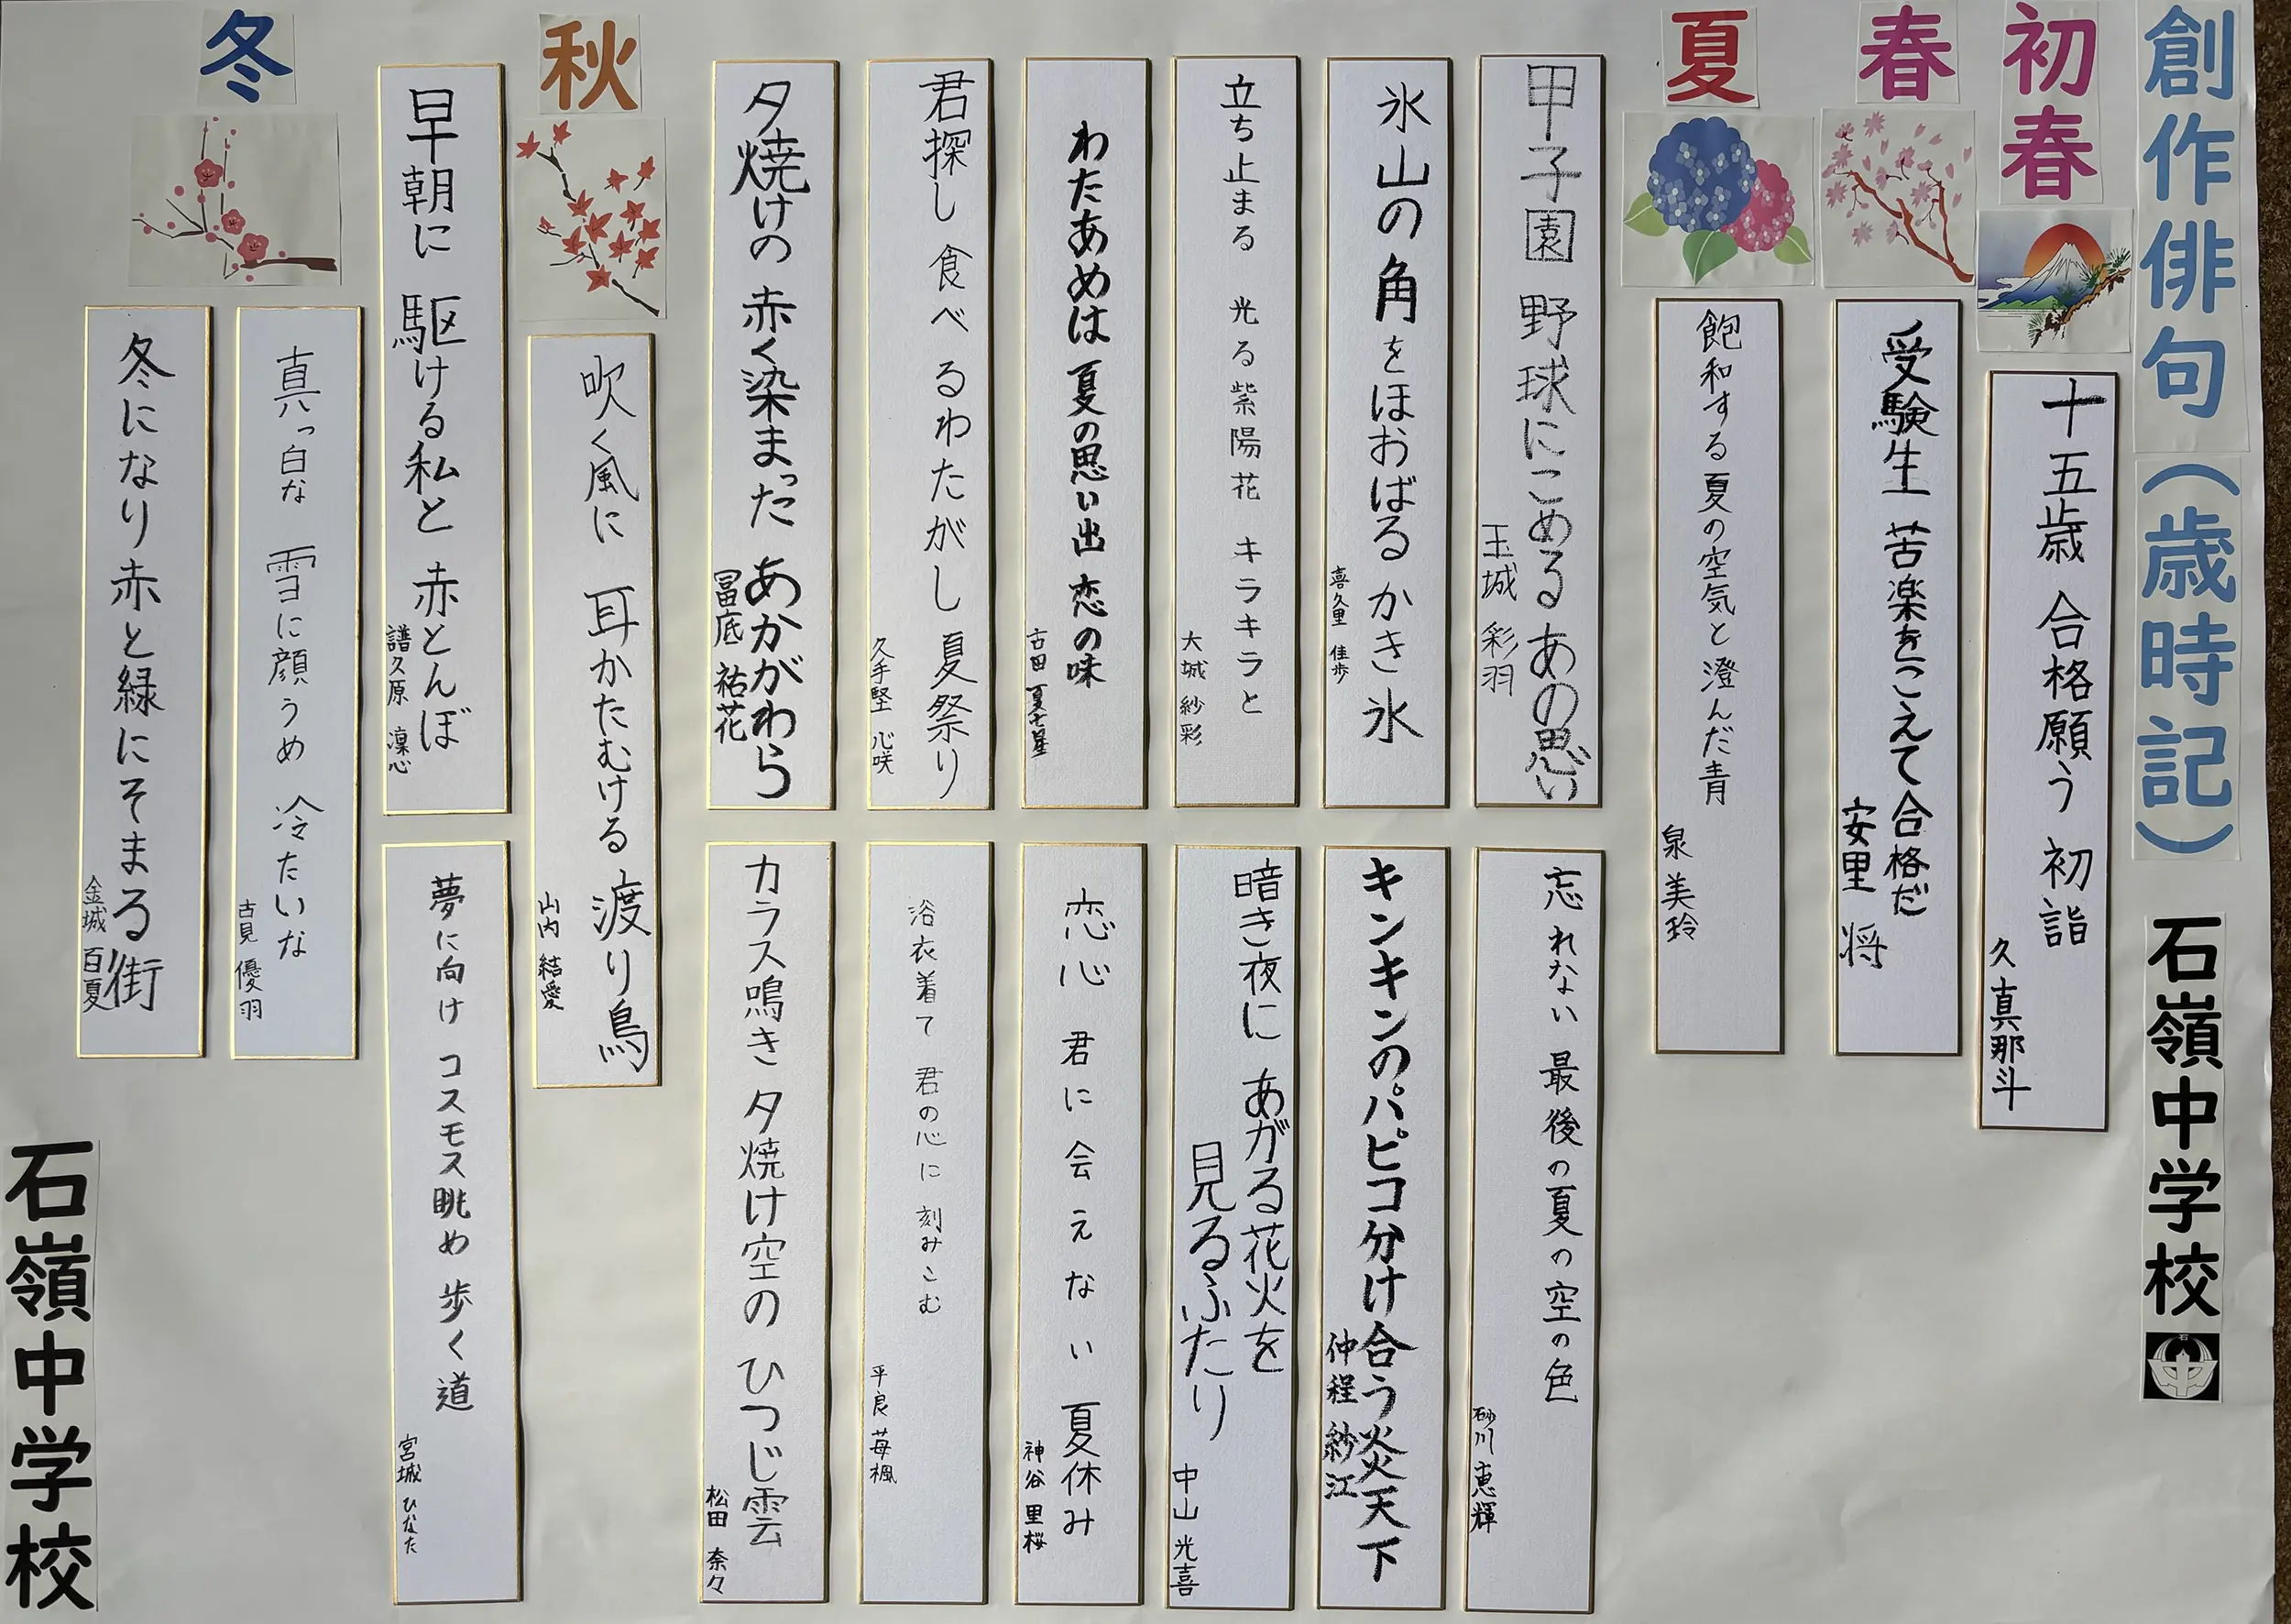 創作俳句(歳時記)
石嶺中学校
初春
十五歳 合格願う 初詣
久 真那斗
春
受験生 苦楽をこえて 合格だ
安里 将
夏
飽和する 夏の空気と 澄んだ青
泉 美玲
甲子園 野球にこめる あの思い
玉城 彩羽
忘れない 最後の夏の 空の色
砂川 恵輝
氷山の 角をほおばる かき氷
喜久里 佳歩
キンキンのパピコ分け合う炎天下
仲程 紗江
立ち止まる 光る紫陽花 キラキラと
大城 紗彩
暗き夜に あがる花火を
見るふたり
中山 光喜
わたあめは 夏の思い出 恋の味
古田 夏七星
恋心 君に会えない 夏休み
神谷 里桜
君探し 食べるわたがし 夏祭り
久手堅 心咲
浴衣着て 君の心に 刻みこむ
平良 苺楓
夕焼けの 赤く染まった あかがわら
冨底 祐花
カラス鳴き 夕焼け空の ひつじ雲
松田 奈々
秋
吹く風に 耳かたむける 渡り鳥
山内 結愛
早朝に 駆ける私と 赤とんぼ
譜久原 凜心
夢に向け コスモス眺め 歩く道
宮城 ひなた
冬
真っ白な 雪に顔うめ 冷たいな
古見 優羽
冬になり赤と緑にそまる街
金城 百夏
石嶺中学校